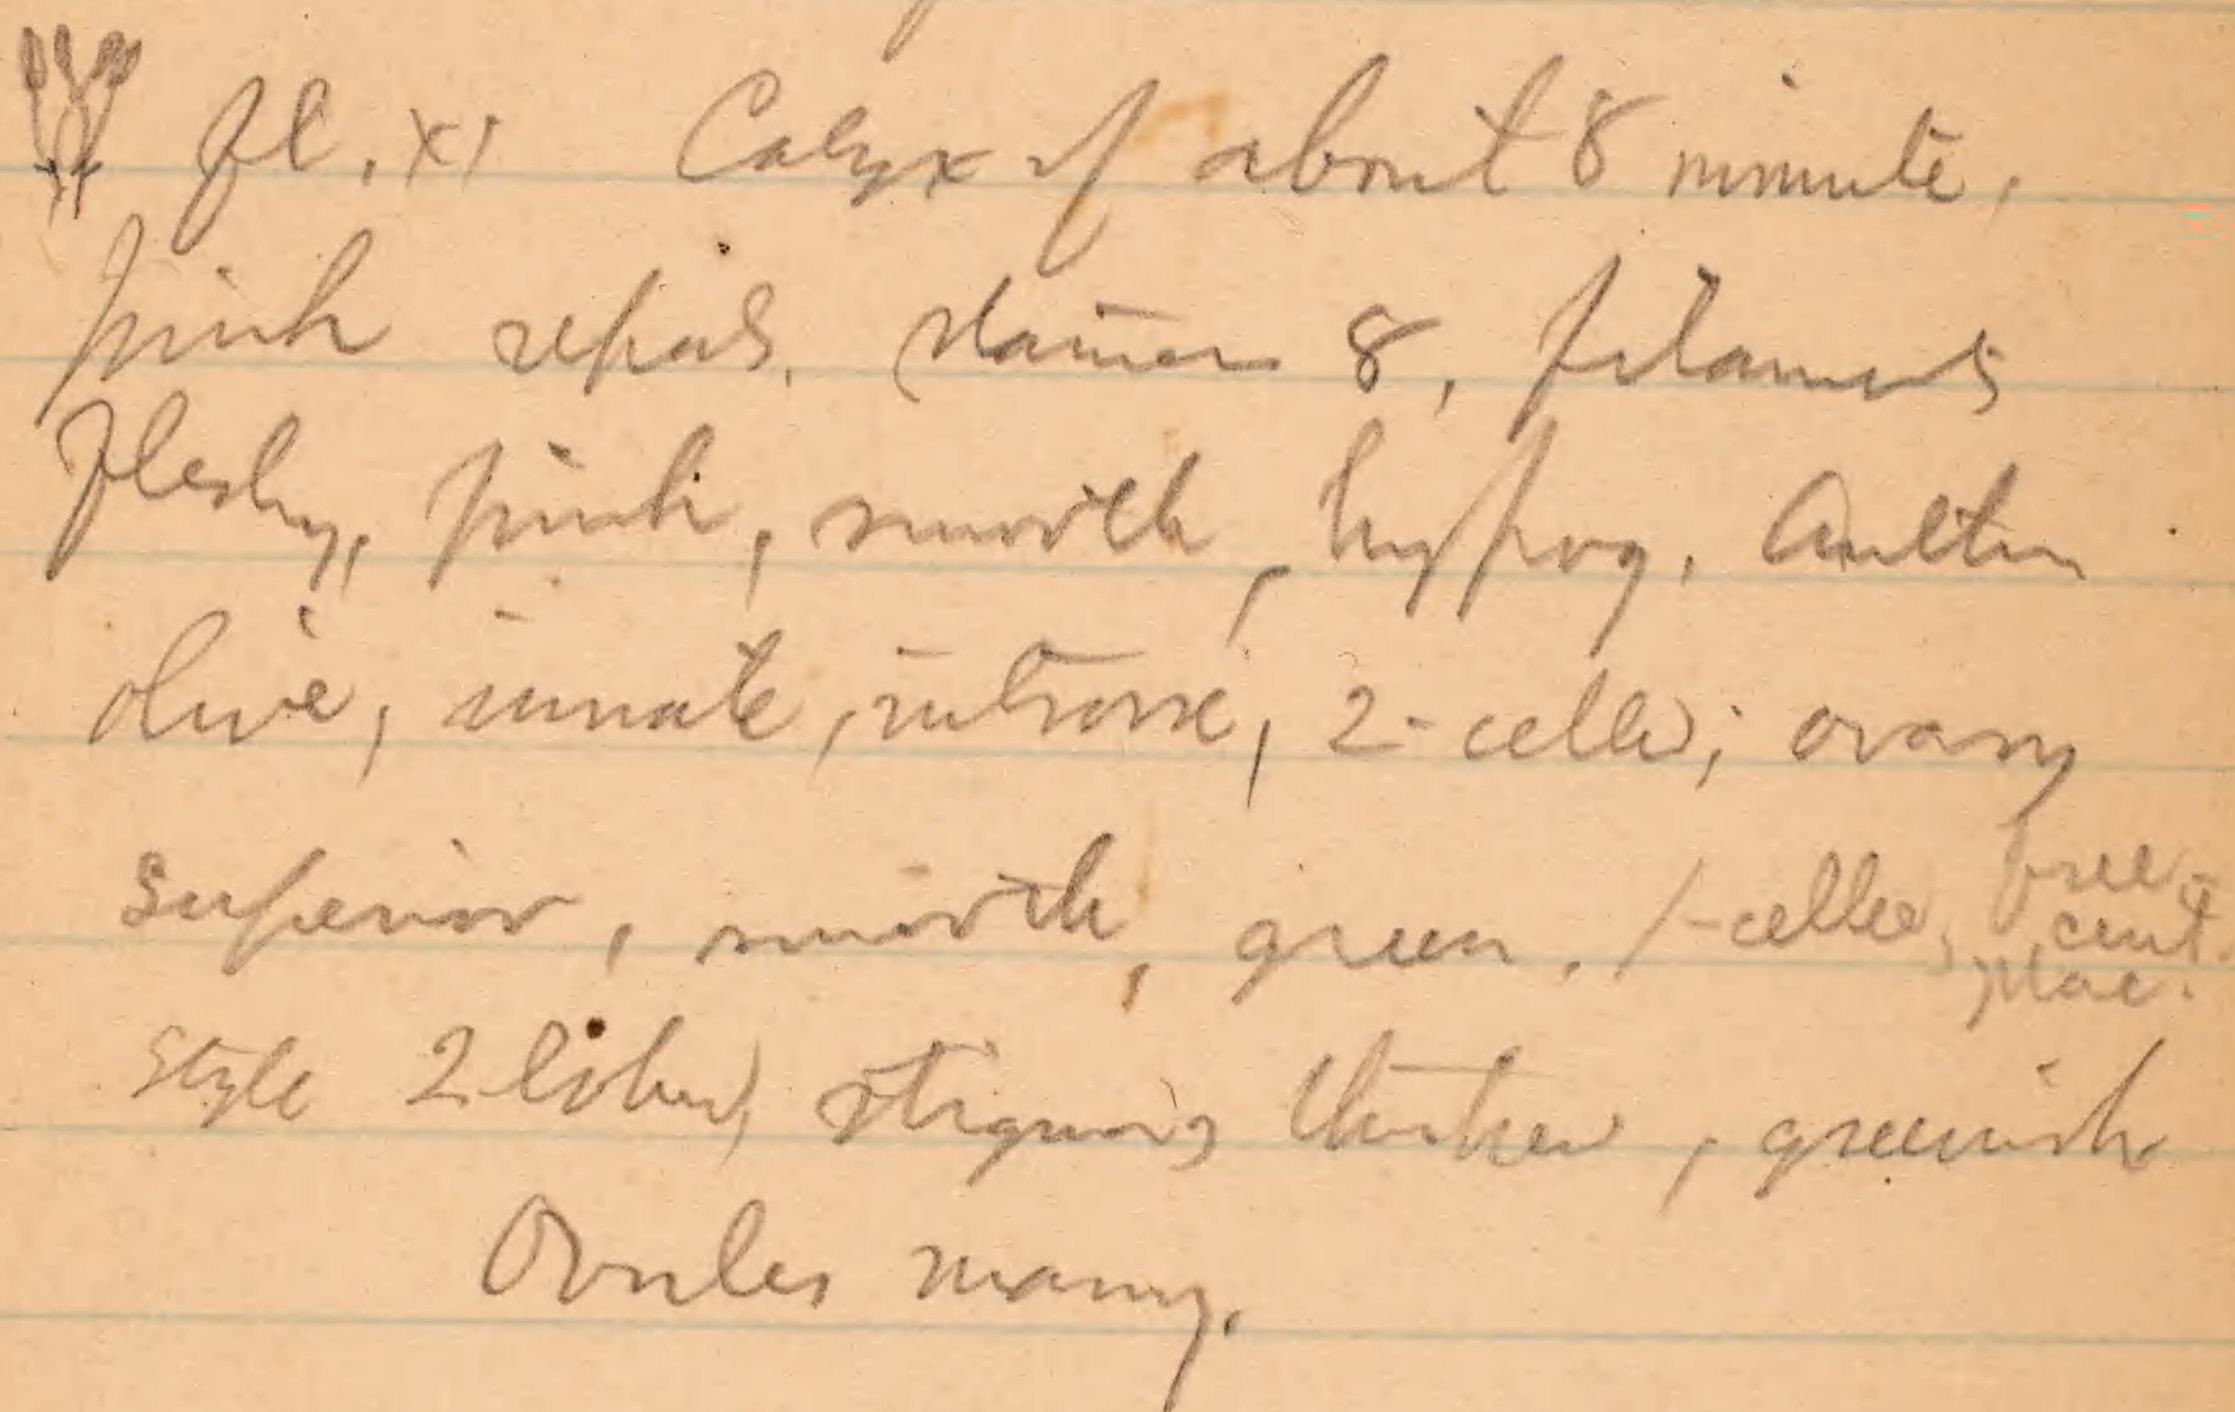 fl. x1 Calyx of about 8 minute,
pink sepals, stamens 8, filaments
fleshy, pink, smooth, hypog. Anthers
olive, innate, introrse, 2-celled; ovary
superior, smooth, green, 1-celled, free
cent.
plac.
style 2 lobed, stigmas thicken, greenish
Ovules many.